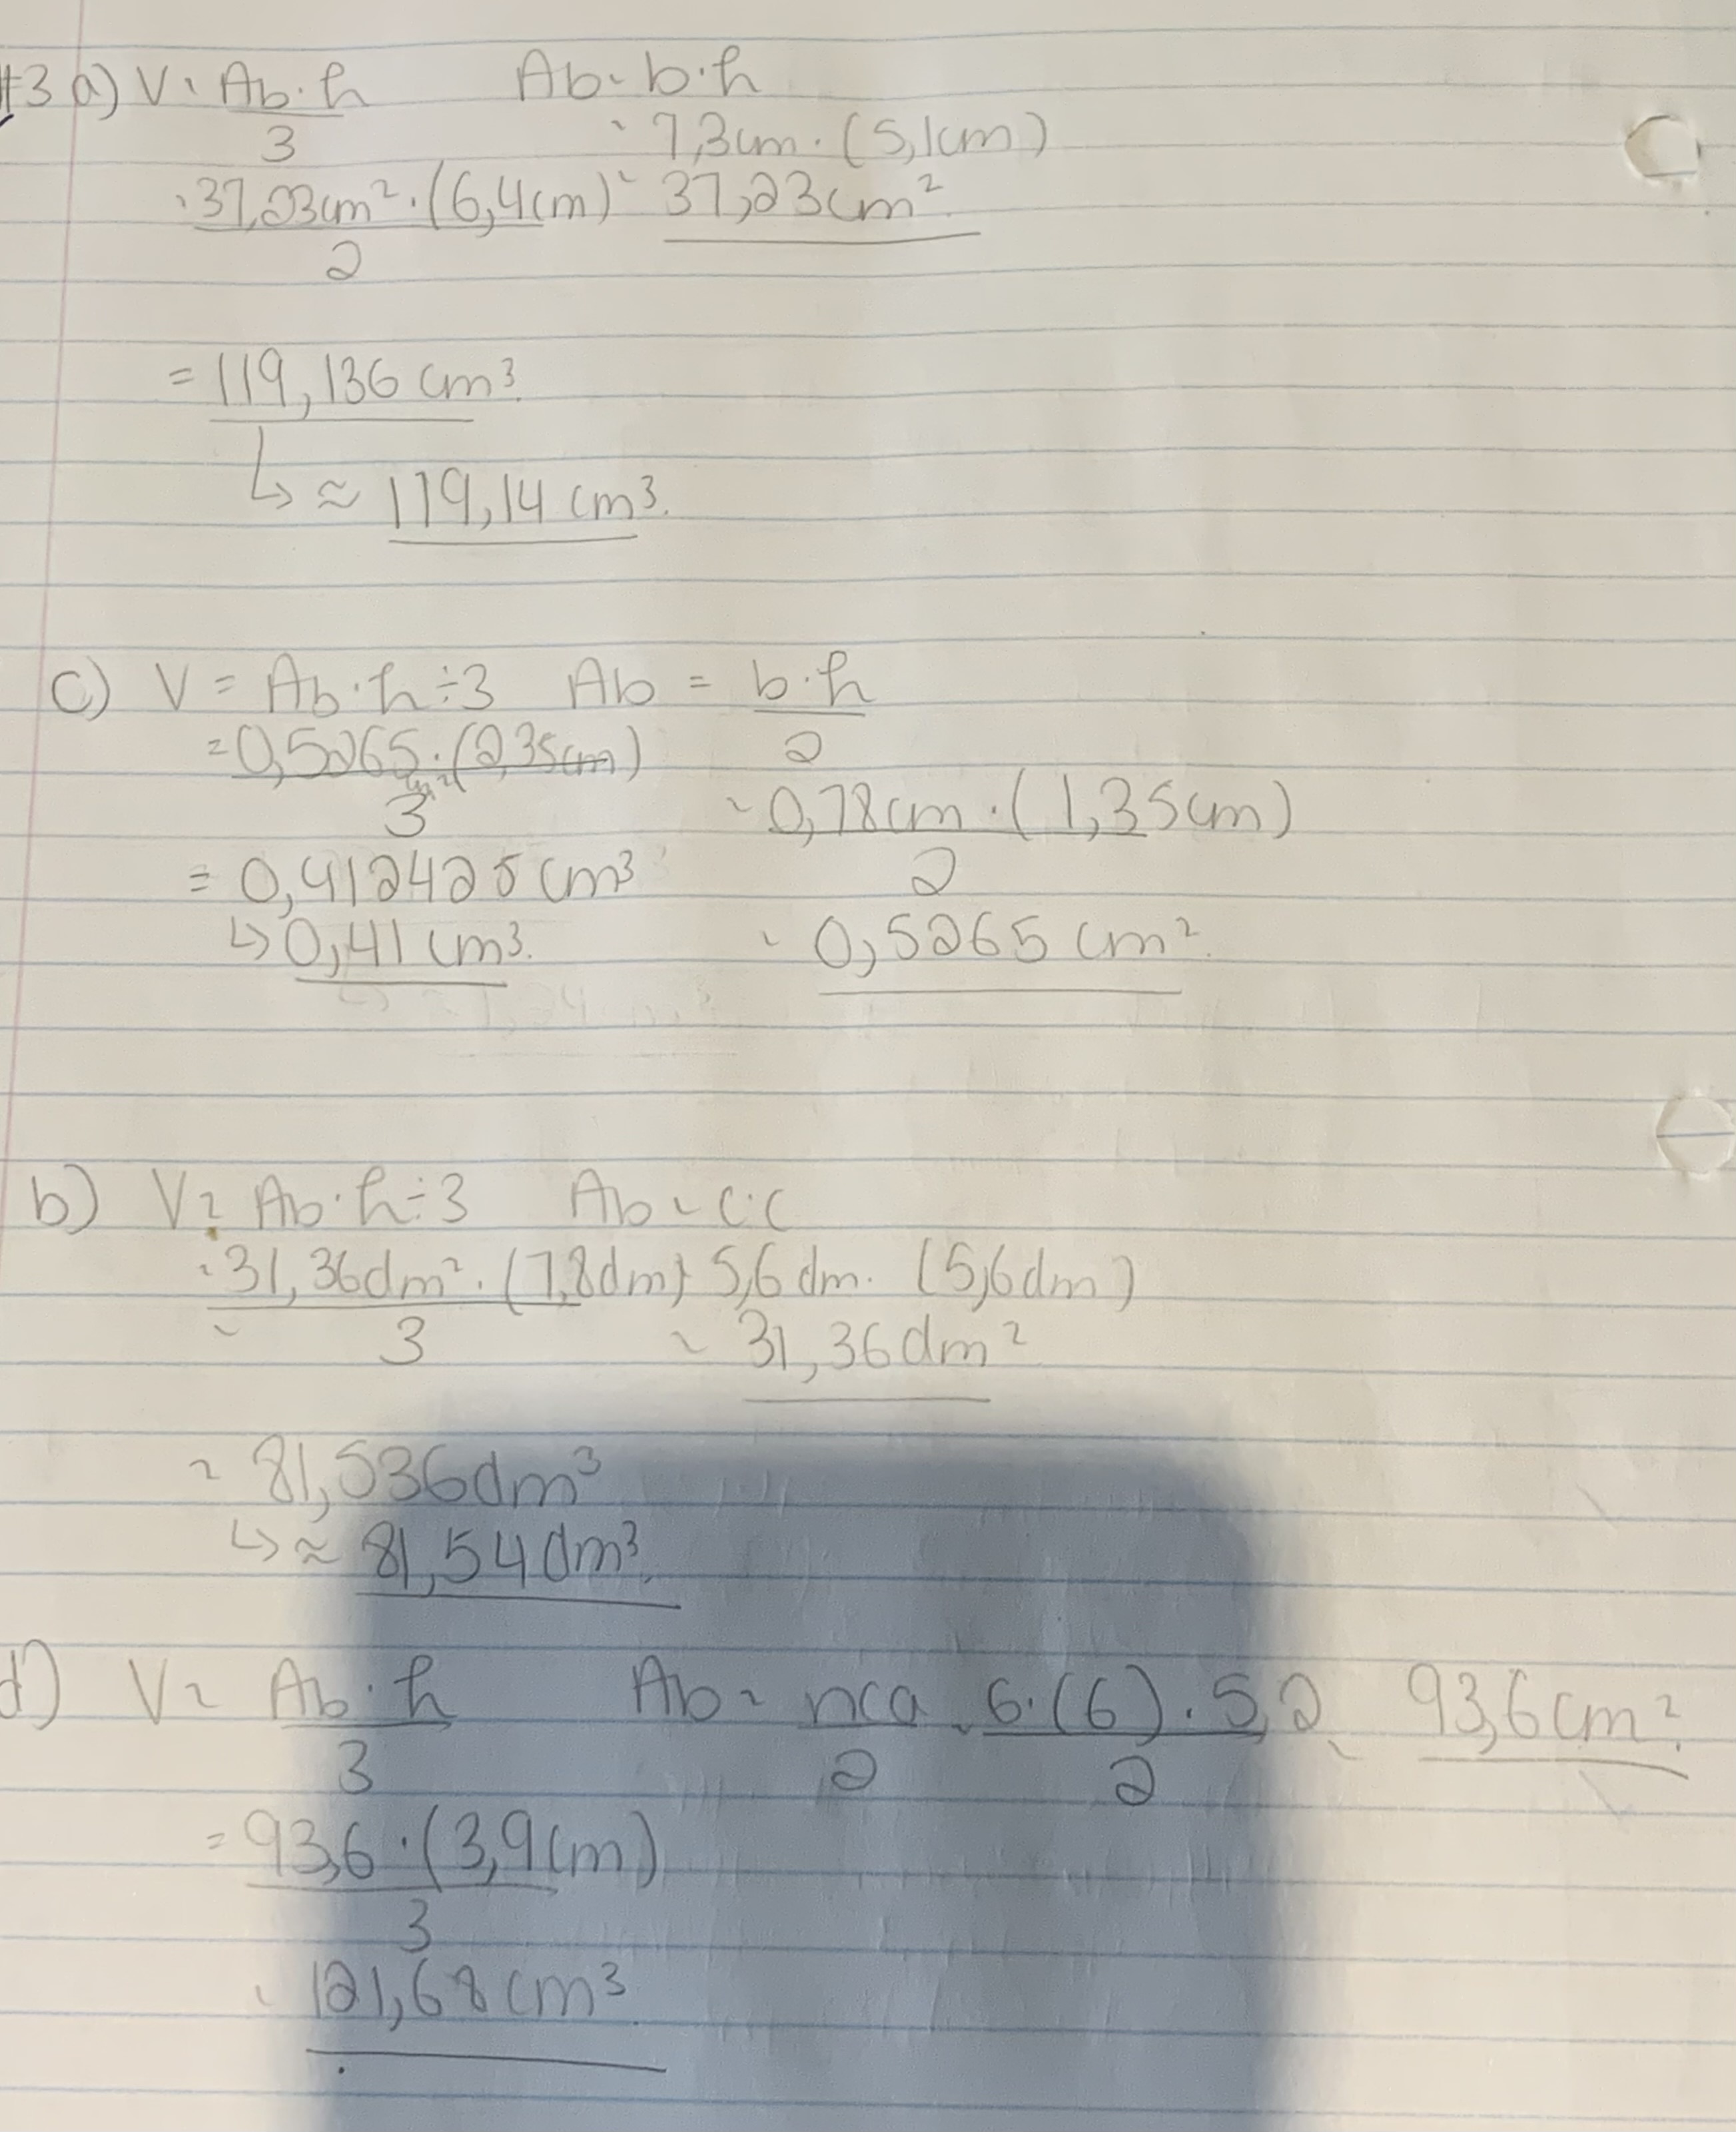 #3 a) V = Ab·h / 3    Ab = b·h
= 7,3cm · (5,1cm)
= 37,23cm² · (6,4cm) / 2    = 37,23cm²
= 119,136 cm³
↳ ≈ 119,14 cm³.
c) V = Ab·h÷3    Ab = b·h / 2
= 0,5265 cm² · (2,35cm) / 3
= 0,78cm · (1,35cm) / 2
= 0,412425 cm³
↳ 0,41 cm³.    = 0,5265 cm².
b) V = Ab·h÷3    Ab = c·c
= 31,36dm² · (7,8dm) / 3    = 5,6 dm · (5,6dm)
= 31,36dm²
= 81,536dm³
↳ ≈ 81,54dm³.
d) V = Ab·h / 3    Ab = nca / 2 = 6·(6)·5,2 / 2 = 93,6cm².
= 93,6 · (3,9cm) / 3
= 121,68 cm³